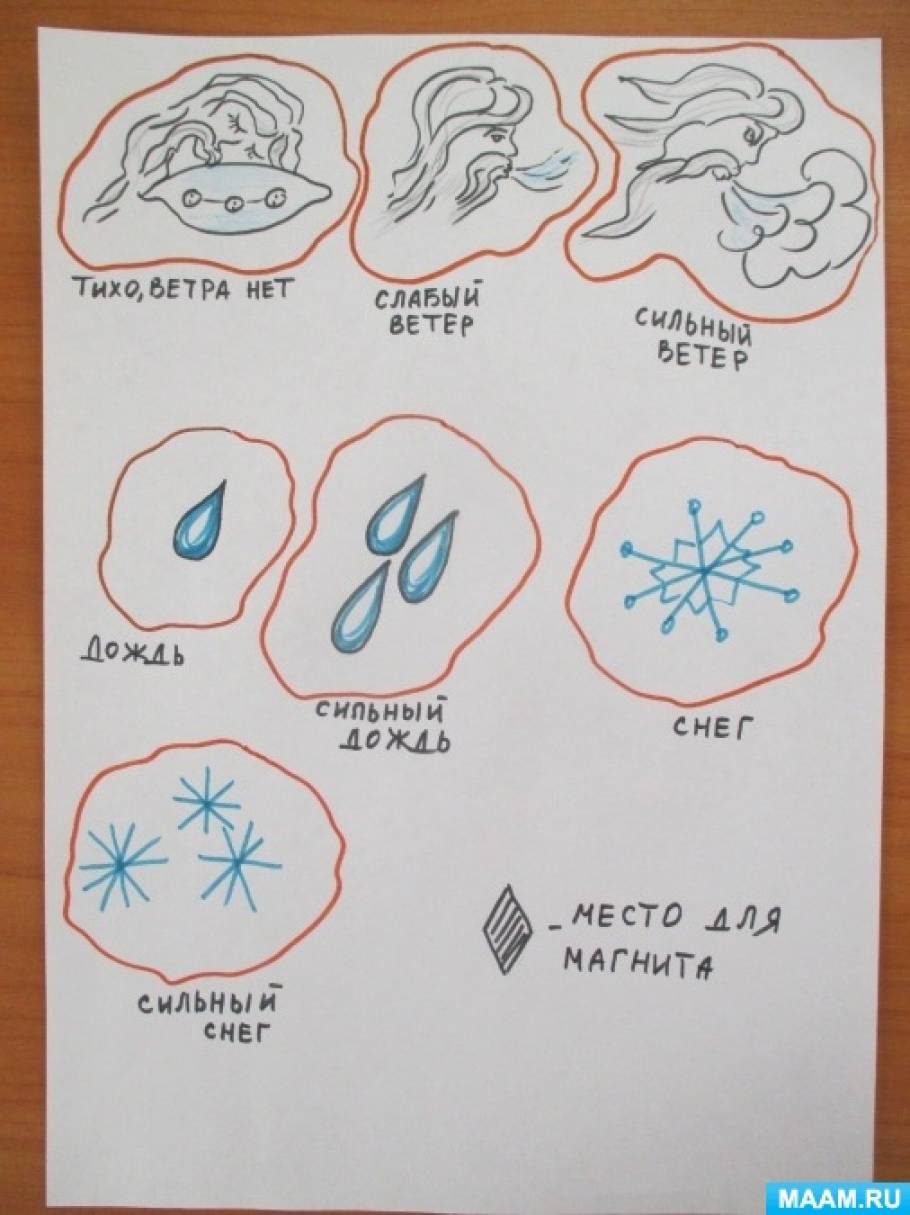 ТИХО, ВЕТРА НЕТ
СЛАБЫЙ
ВЕТЕР
СИЛЬНЫЙ
ВЕТЕР
ДОЖДЬ
СИЛЬНЫЙ
ДОЖДЬ
СНЕГ
СИЛЬНЫЙ
СНЕГ
- МЕСТО ДЛЯ
МАГНИТА
MAAM.RU